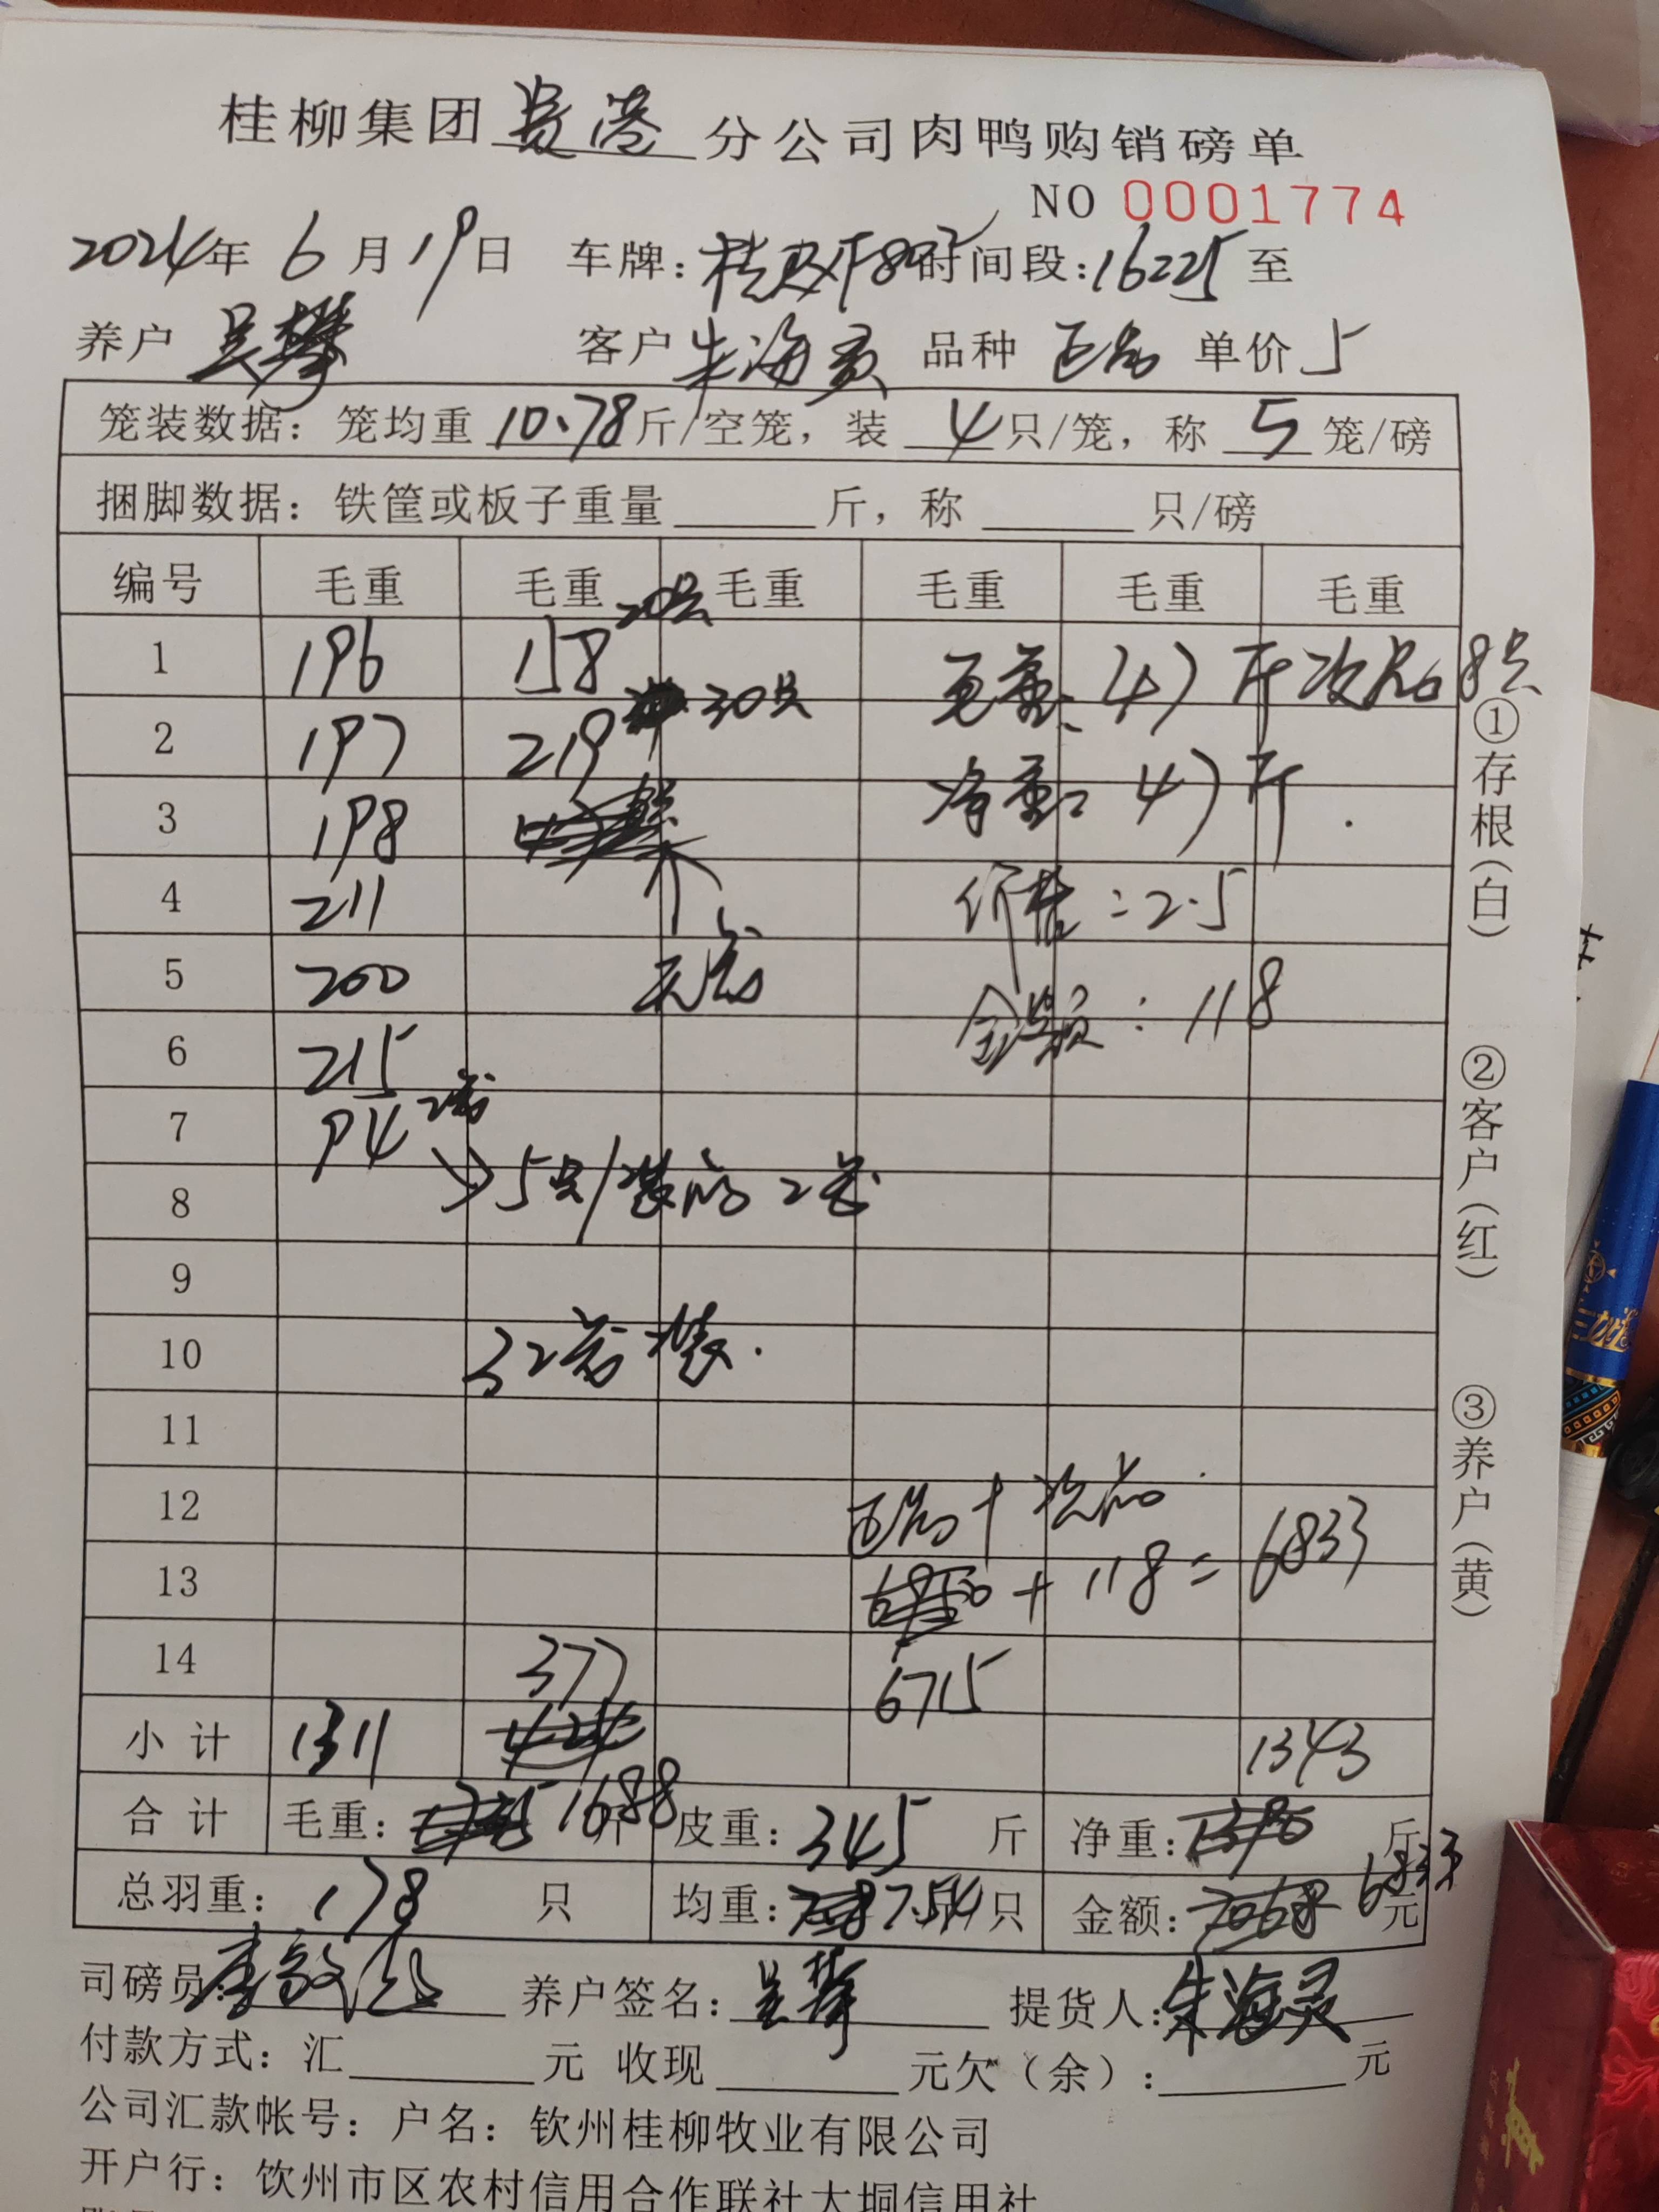 桂柳集团贵港分公司肉鸭购销磅单
NO 0001774
2024年 6月19日 车牌: 时间段:16225至
养户 吴攀 客户 朱海灵 品种 正品 单价 5
笼装数据: 笼均重 10.78 斤/空笼, 装 4 只/笼, 称 5 笼/磅
捆脚数据: 铁筐或板子重量 斤, 称 只/磅
编号 毛重 毛重 毛重 毛重 毛重 毛重
1 196 158 20只 毛重: 47斤 次品8只
2 197 219 30只
3 198 净重: 47斤
4 211 价格:2.5
5 200 无笼 金额:118
6 215
7 94 2笼
8 5只/装的 2笼
9
10 32笼装.
11
12 正品+次品
13 +118=6833
14 377 6715
小计 1311 1343
合计 毛重: 1688 斤 皮重: 345 斤 净重: 斤
总羽重: 178 只 均重: 7.54 只 金额: 6833 元
司磅员: 养户签名: 吴攀 提货人: 朱海灵
付款方式: 汇 元 收现 元欠(余): 元
公司汇款帐号: 户名: 钦州桂柳牧业有限公司
开户行: 钦州市区农村信用合作联社大垌信用社
①存根(白)
②客户(红)
③养户(黄)